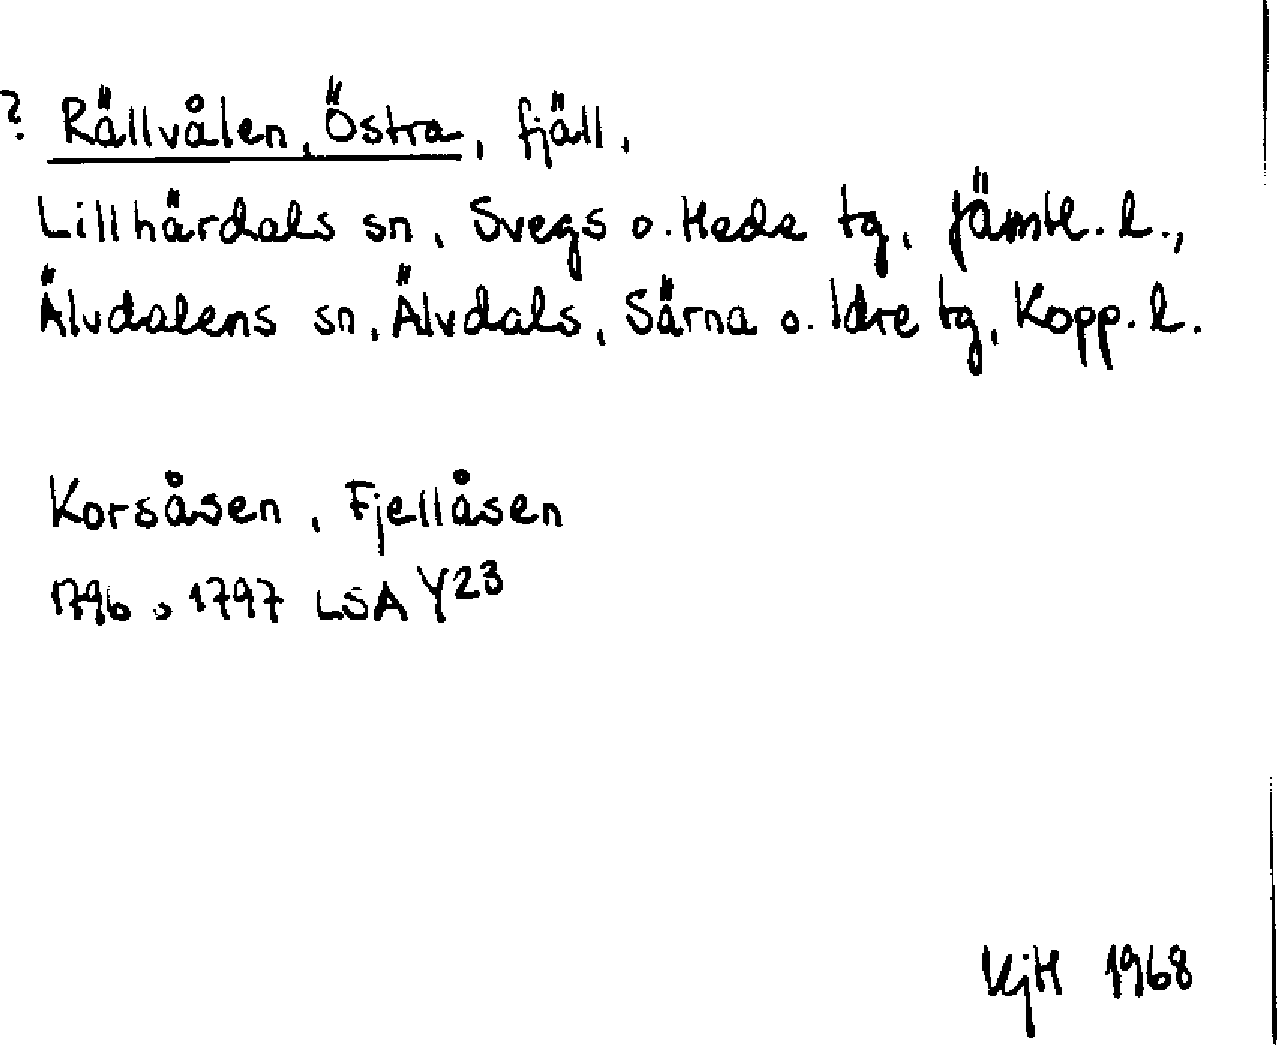 ? Rällvålen, Östra, fjäll,
Lillhärdals sn, Svegs o. Heds tg, Jämtl. l.,
Älvdalens sn, Älvdals, Särna o. Idre tg, Kopp. l.
Korsåsen, Fjellåsen
1796 o 1797 LSA Y23
KjH 1968